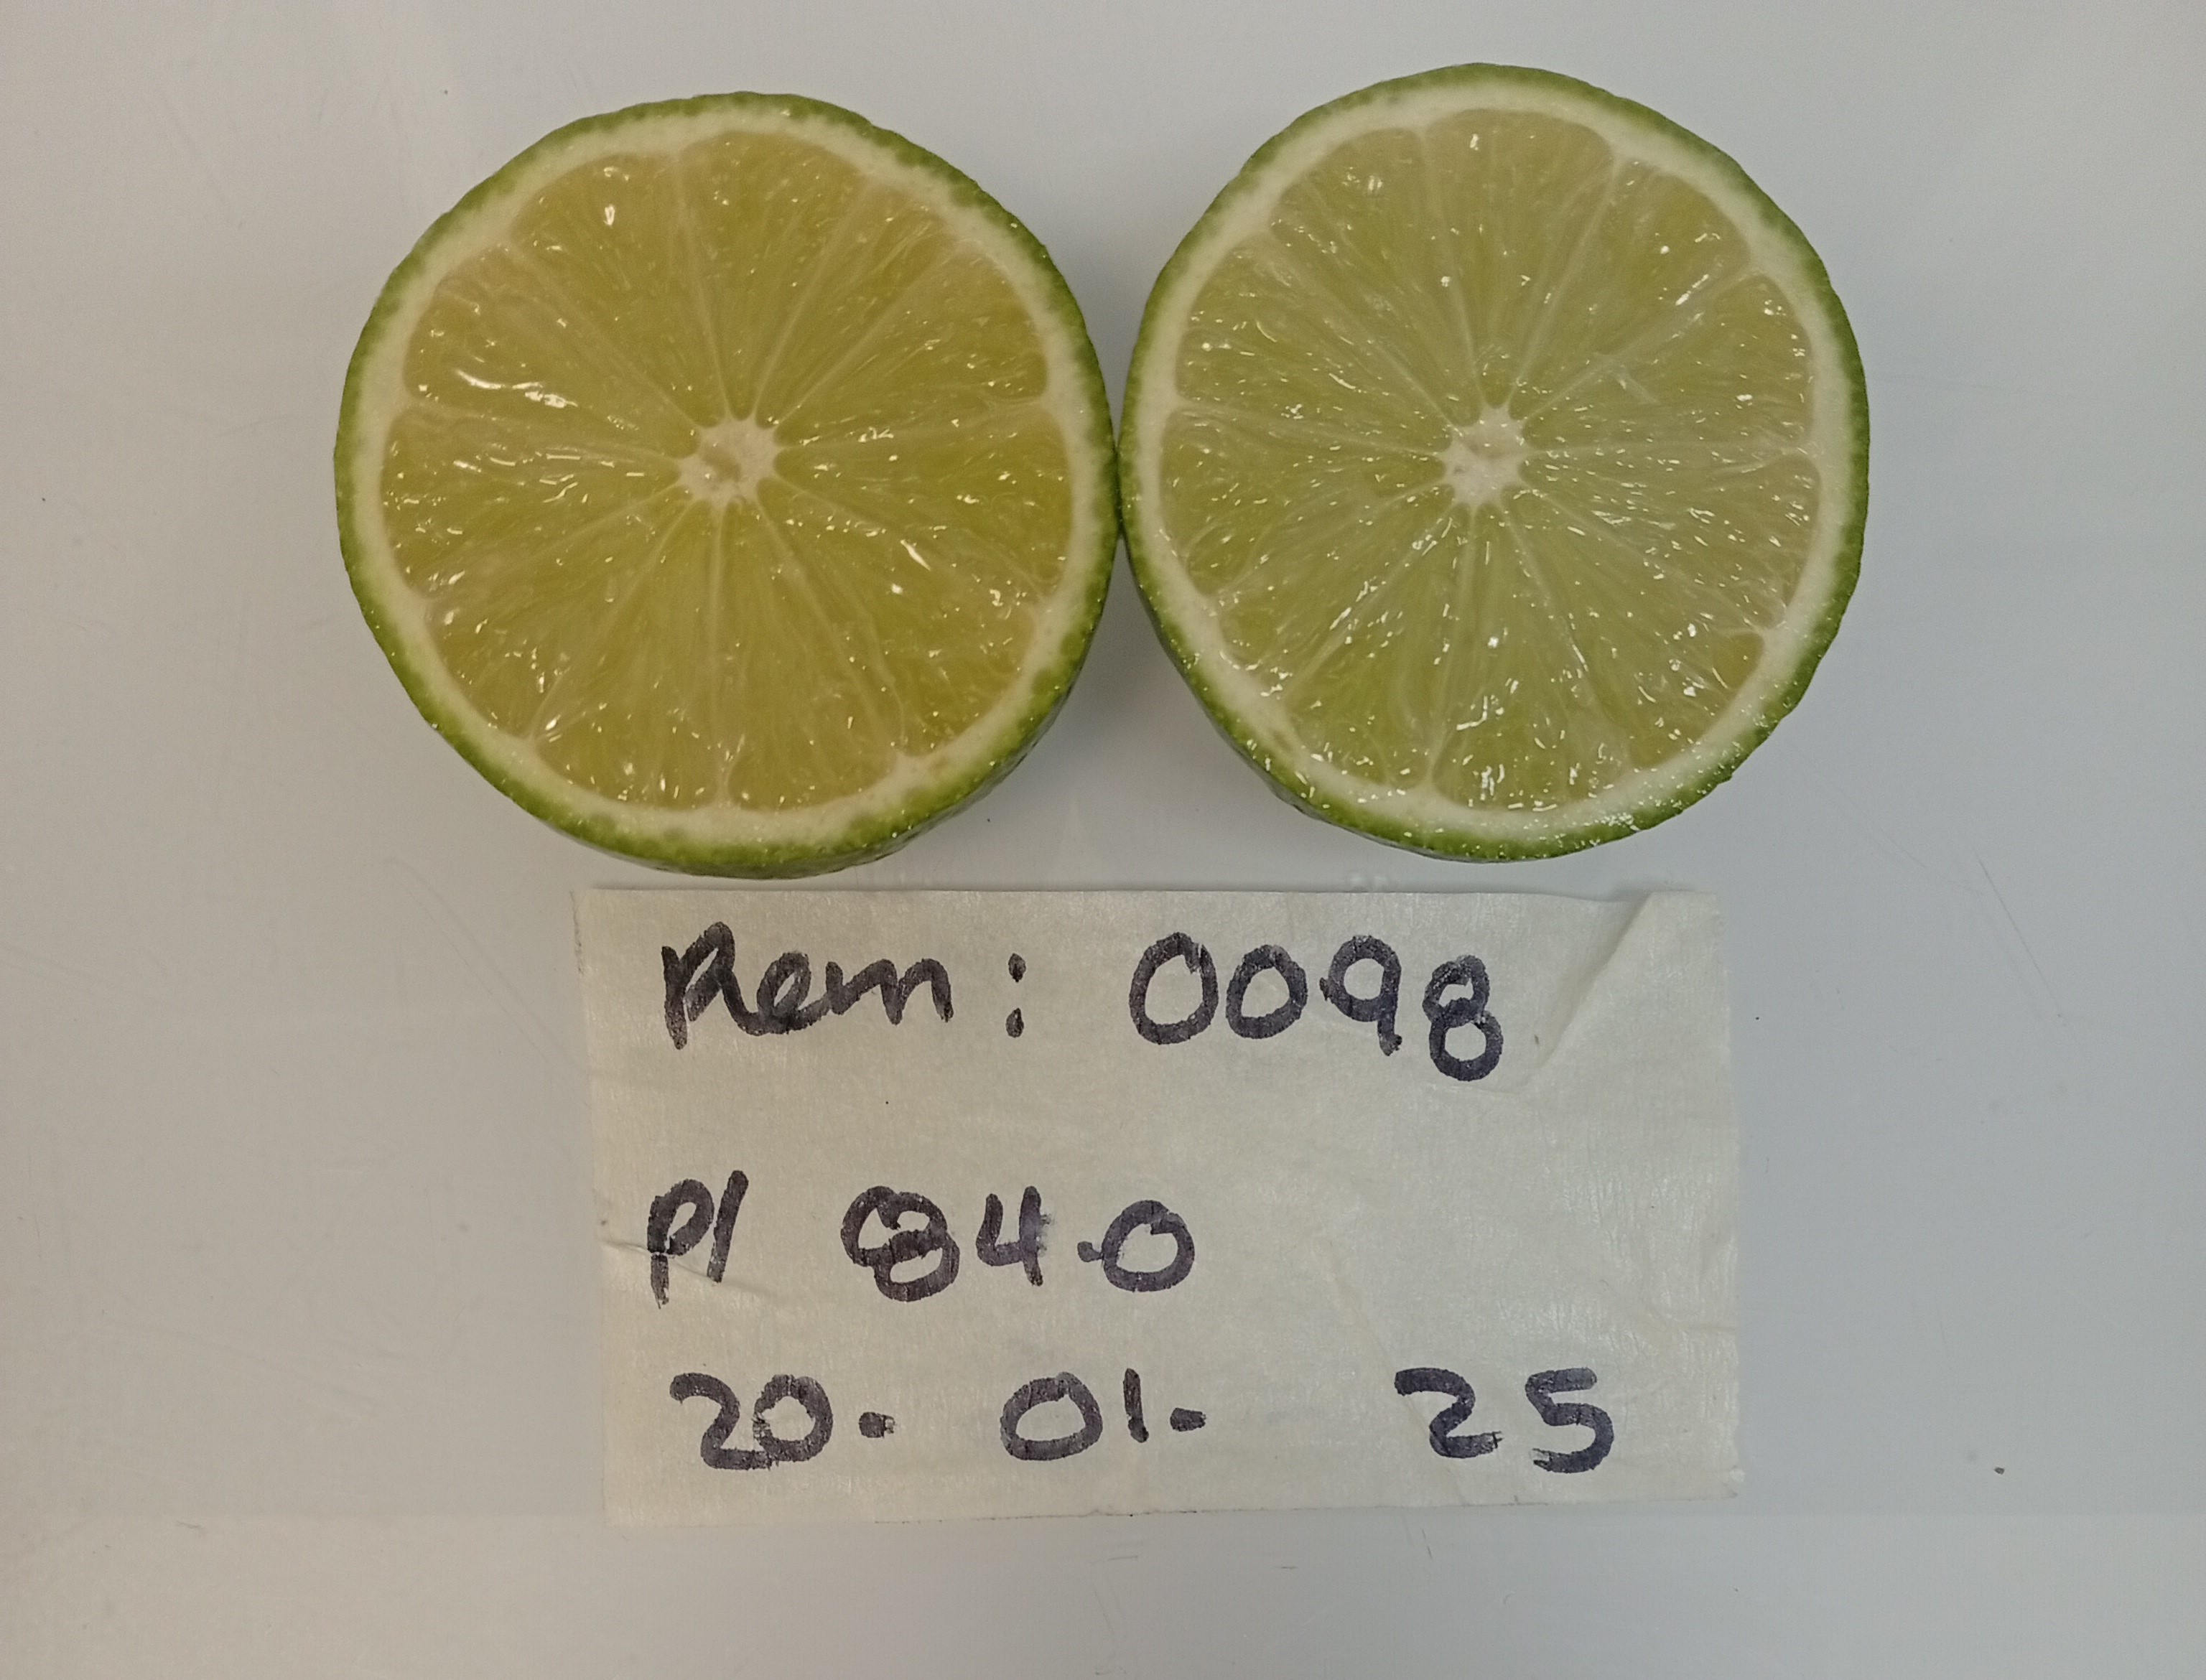 Rem: 0098
P/ 840
20. 01. 25